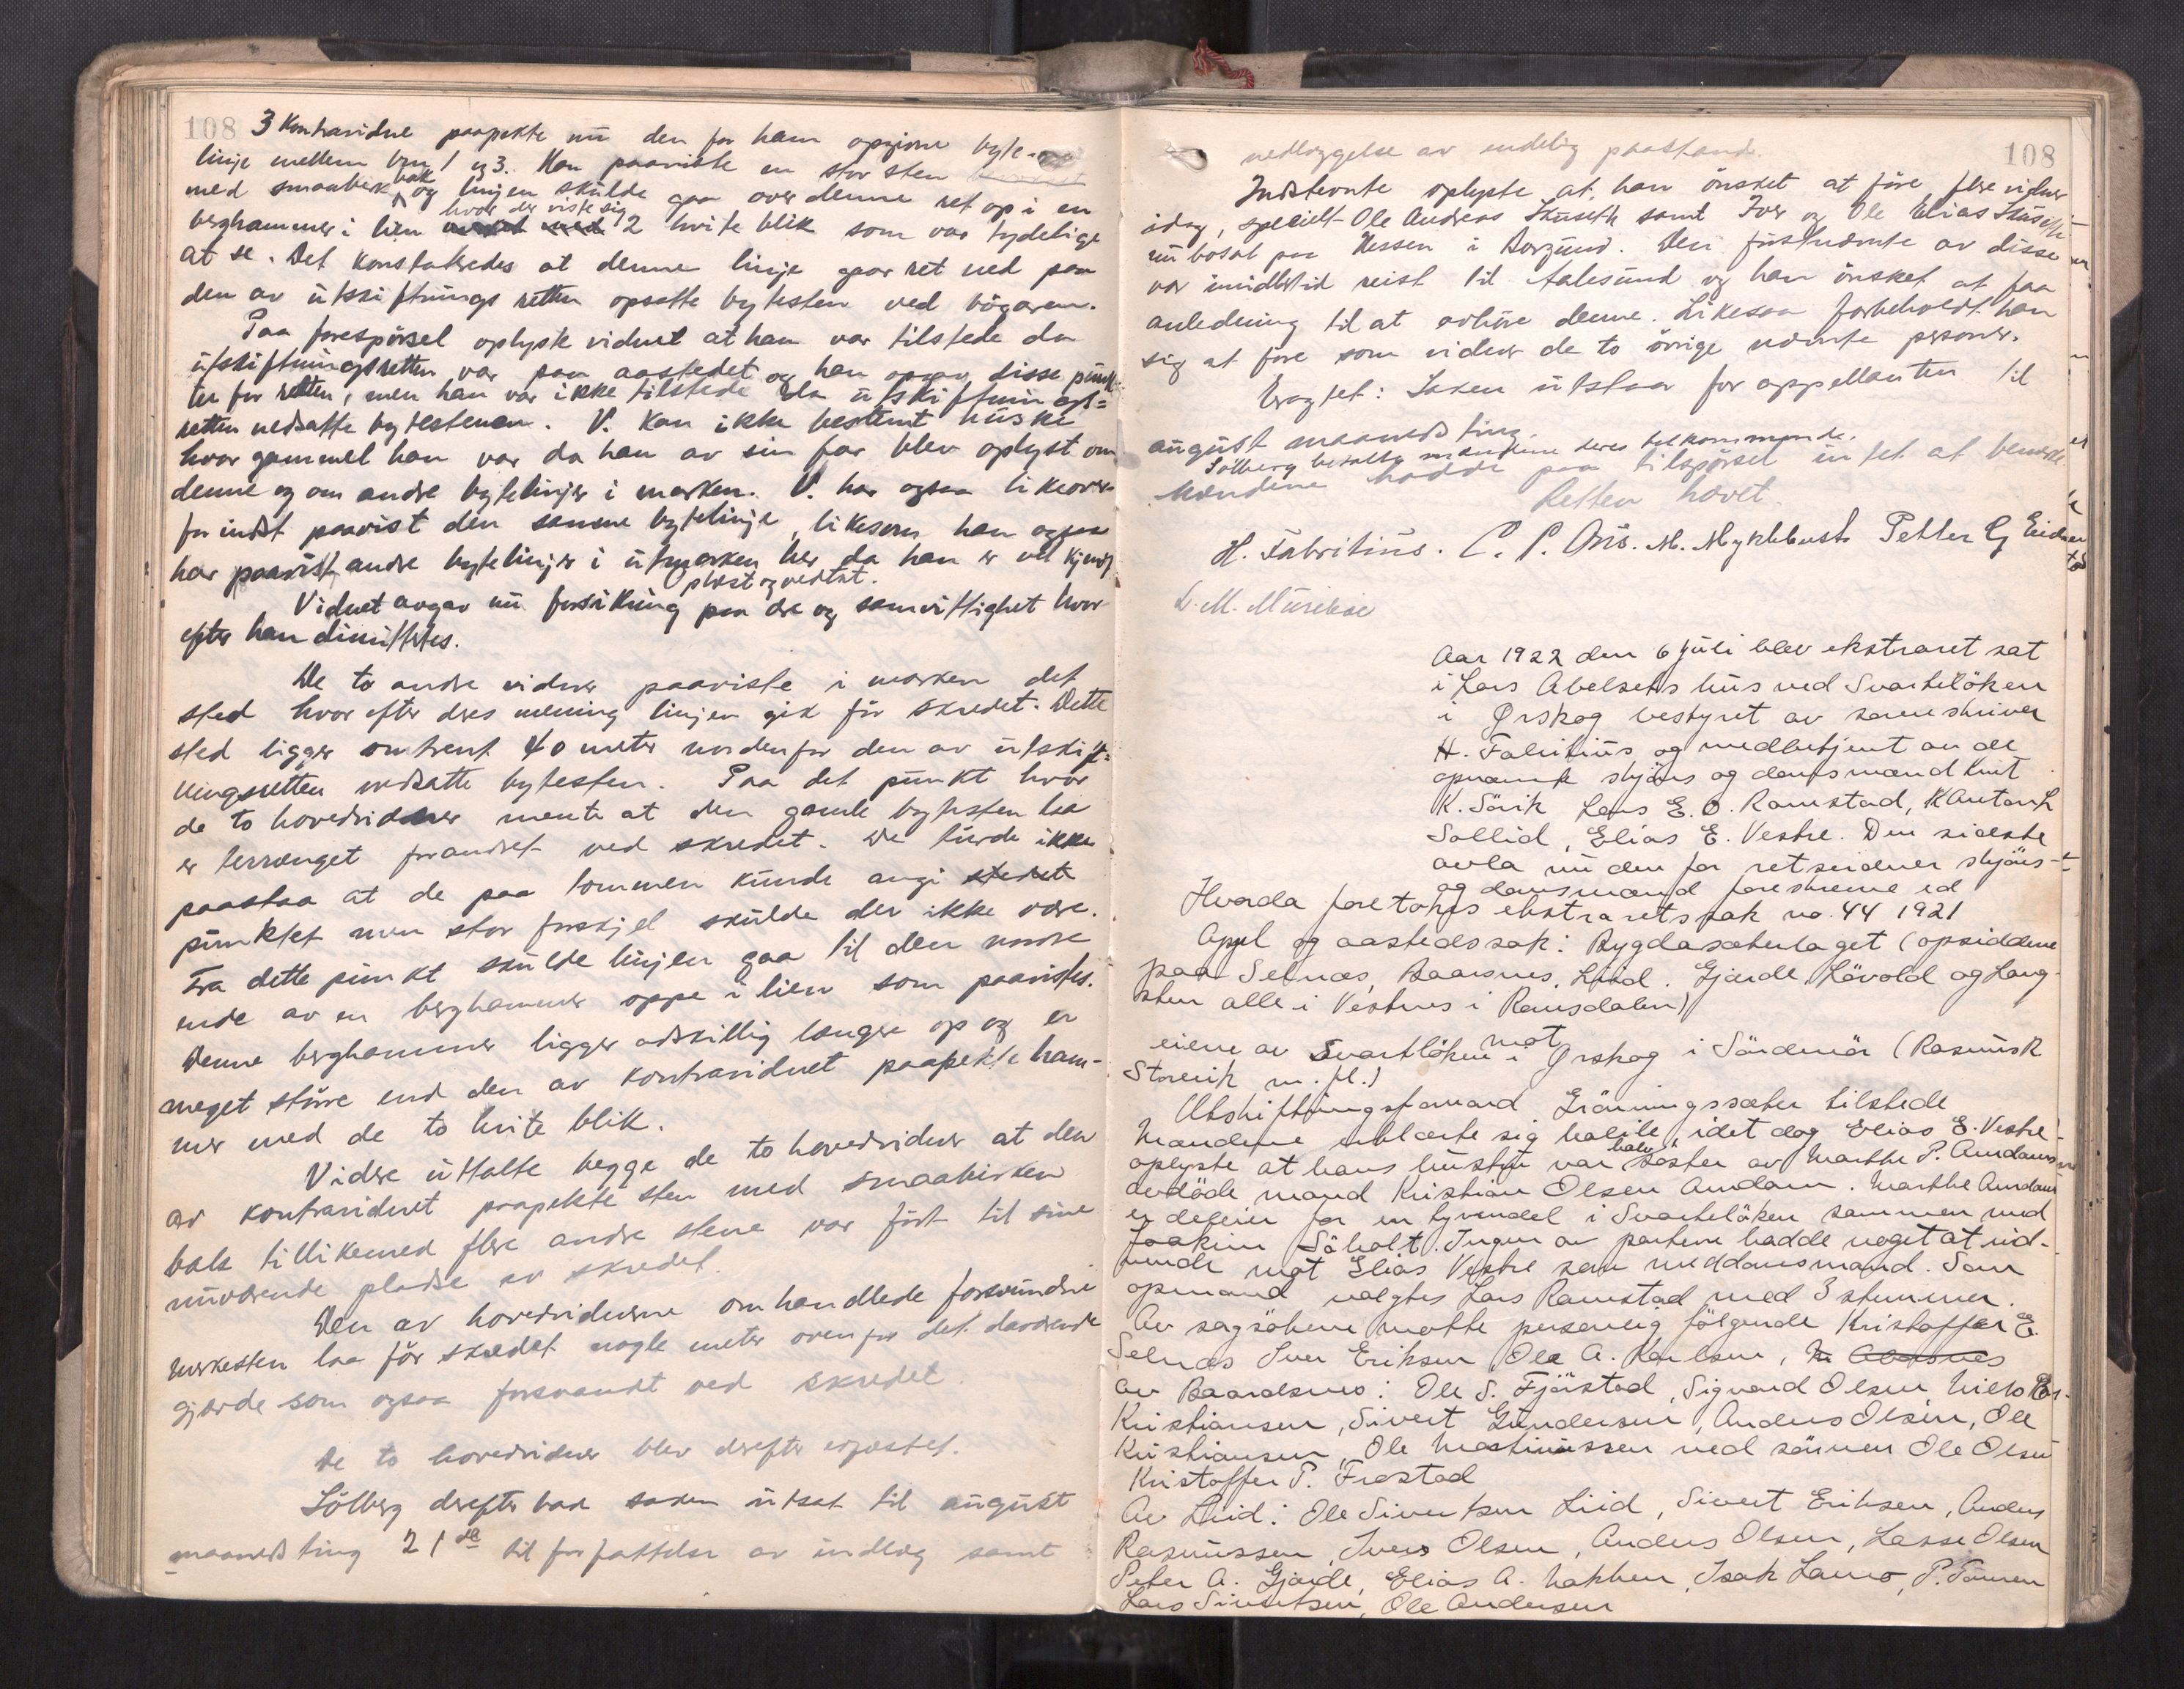 108 3 Kontravidne paapekte nu den for ham opgivne byte-
linje mellem bru 1 og 3. Han paaviste en stor sten
med smaabirk bak og linjen skulde gaa over denne ret op i en
berghammer i lien hvor der viste sig 2 hvite blik som var tydelige
at se. Det konstateredes at denne linje gaar ret ned paa
den av utskiftnings retten opsatte bytesten ved
Paa forespörsel oplyste vidnet at han var tilstede da
utskiftningsretten var paa aastedet og han opgav disse punk
ter for retten, men han var ikke tilstede da utskiftnings=
retten nedsatte bytestenen. V. kan ikke bestemt huske
hvor gammel han var da han av sin far blev oplyst om
denne og om andre bytelinjer i marken. V. har ogsaa likeover
for indst paavist den samme bytelinje, likesom han ogsaa
har paavist andre bytelinjer i utmarken her da han er vel kjendt
plæst og vedtat.
Vidnet avgav nu forsikring paa ære og samvittighet hvor
efter han dimittertes.
De to andre vidner paaviste i marken det
sted hvor efter deres mening linjen gik för skredet. Dette
sted ligger omtrent 40 meter nordenfor den av utskift=
ningsretten nedsatte bytesten. Paa det punkt hvor
de to hovedvidner mente at den gamle bytesten laa
er terrænget forandret ved skredet. De turde ikke
paastaa at de paa tommen kunde angi stedet
punktet men stor forskjel skulde der ikke være.
Fra dette punkt skulde linjen gaa til den nordre
ende av en berghammer oppe i lien som paavistes.
Denne berghammer ligger adskillig længere op og er
meget större end den av kontravidnet paapekte ham-
mer med de to hvite blik.
Videre uttalte begge de to hovedvidner at den
av kontravidnet paapekte sten med smaabirken
bak tillikemed flere andre stene var fört til sine
nuværende pladse av skredet.
Den av hovedvidnerne omhandlede forsvundne
merkesten laa för skredet nogle meter ovenfor det daværende
gjærde som ogsaa forsvandt ved skredet.
De to hovedvidner blev derefter
Sölberg derefter bad saken utsat til august
maanedsting 21de til forfattelse av indlæg samt
108
nedlæggelse av endelig paastand.
Indstevnte oplyste at han önsket at före flere vidner
idag, specielt Ole Andreas Skuseth samt Iver og Ole Elias Skuseth
nu bosat paa Hessen i Borgund. Den förstnævnte av disse
var imidlertid reist til Aalesund og han önsket at faa
anledning til at avhöre denne. Likesaa forbeholdt han
sig at före som vidner de to övrige nævnte personer.
Eragtet: Saken utstaar for appellanten til
august maanedsting.
Sölberg betalte mændene deres tilkommende.
Mændene hadde paa tilspörsel intet at bemerke
Retten hævet.
H. Fabritius. C. P. Aus. M. Myklebust Petter G Eidem
L. M. Murikse
Aar 1922 den 6 juli blev ekstraret sat
i Lars Abelsets hus ved Svartelöken
i Ørskog bestyret av sorenskriver
H. Fabritius og medbetjent av de
opnævnte skjöns og domsmænd Knut
K. Särik Lars E. O. Ramstad, K Antonh
Sollid, Elias E. Vestre. Den sidste
avla nu den for retsvidner skjöns-
og domsmænd foreskrevne ed
Hvorda foretokes ekstraretssak no. 44 1921
Appel og aastedssak: Bygdasæterlaget (opsiddene
paa Selnæs, Baarsnes, Liid. Gjærde, Lövold og Lang-
sten alle i Vestnes i Romsdalen)
mot
eierne av Svartlöken i Ørskog i Söndmör (Rasmus K
Storevik m. fl.)
Utskiftningsformand Grönningssæter tilstede
Mændene erklærte sig habile, idet dog Elias E. Vestre
oplyste at hans hustru var halv söster av Marthe P. Amdams
avdöde mand Kristian Olsen Amdam. Marthe Amdam
er deleier for en tyvendel i Svartelöken sammen med
Joakim Söholt. Ingen av parterne hadde noget at ind-
vende mot Elias Vestre som meddomsmand. Som
opmand valgtes Lars Ramstad med 3 stemmer.
Av sagsökerne mötte personlig fölgende Kristoffer E.
Selnæs Iver Eriksen, Ole A. Karlsen,
av Baardsnes: Ole S. Fjörstad, Sigvard Olsen Nils
Kristiansen, Sivert Gundersen, Anders Olsen, Ole
Kristiansen, Ole Mastinussen ved sönnen Ole Olsen
Kristoffer P. Frostad
Av Liid: Ole Sivertsen Liid, Sivert Eriksen, Anders
Rasmussen, Ivers Olsen, Anders Olsen, Lasse Olsen
Peter A. Gjærde, Elias A. Nakken, Isak P. Tomren
Lars Sivertsen, Ole Andersen